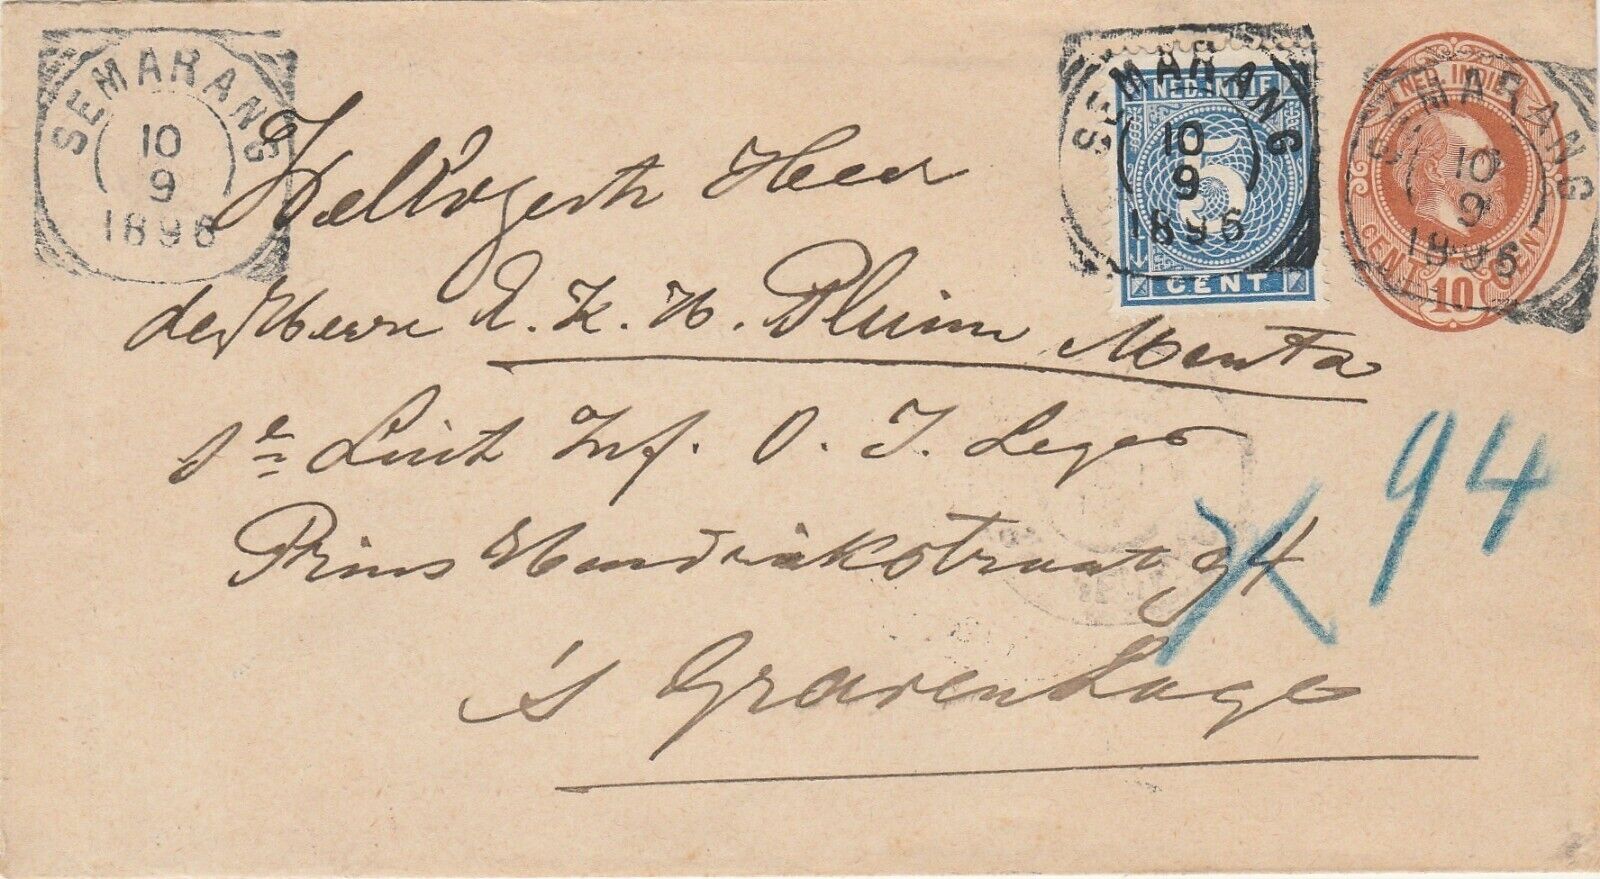 SEMARANG
10
9
1896
SEMARANG
10
9
1896
NED. INDIE
5
CENT
SEMARANG
10
9
1896
NED. INDIE
CENT 10 CENT
Heer
den Heere A. K. W. Pluim Menta
Luit Inf. O. I. Leger
Prins Hendrikstraat 94
's Gravenhage
94